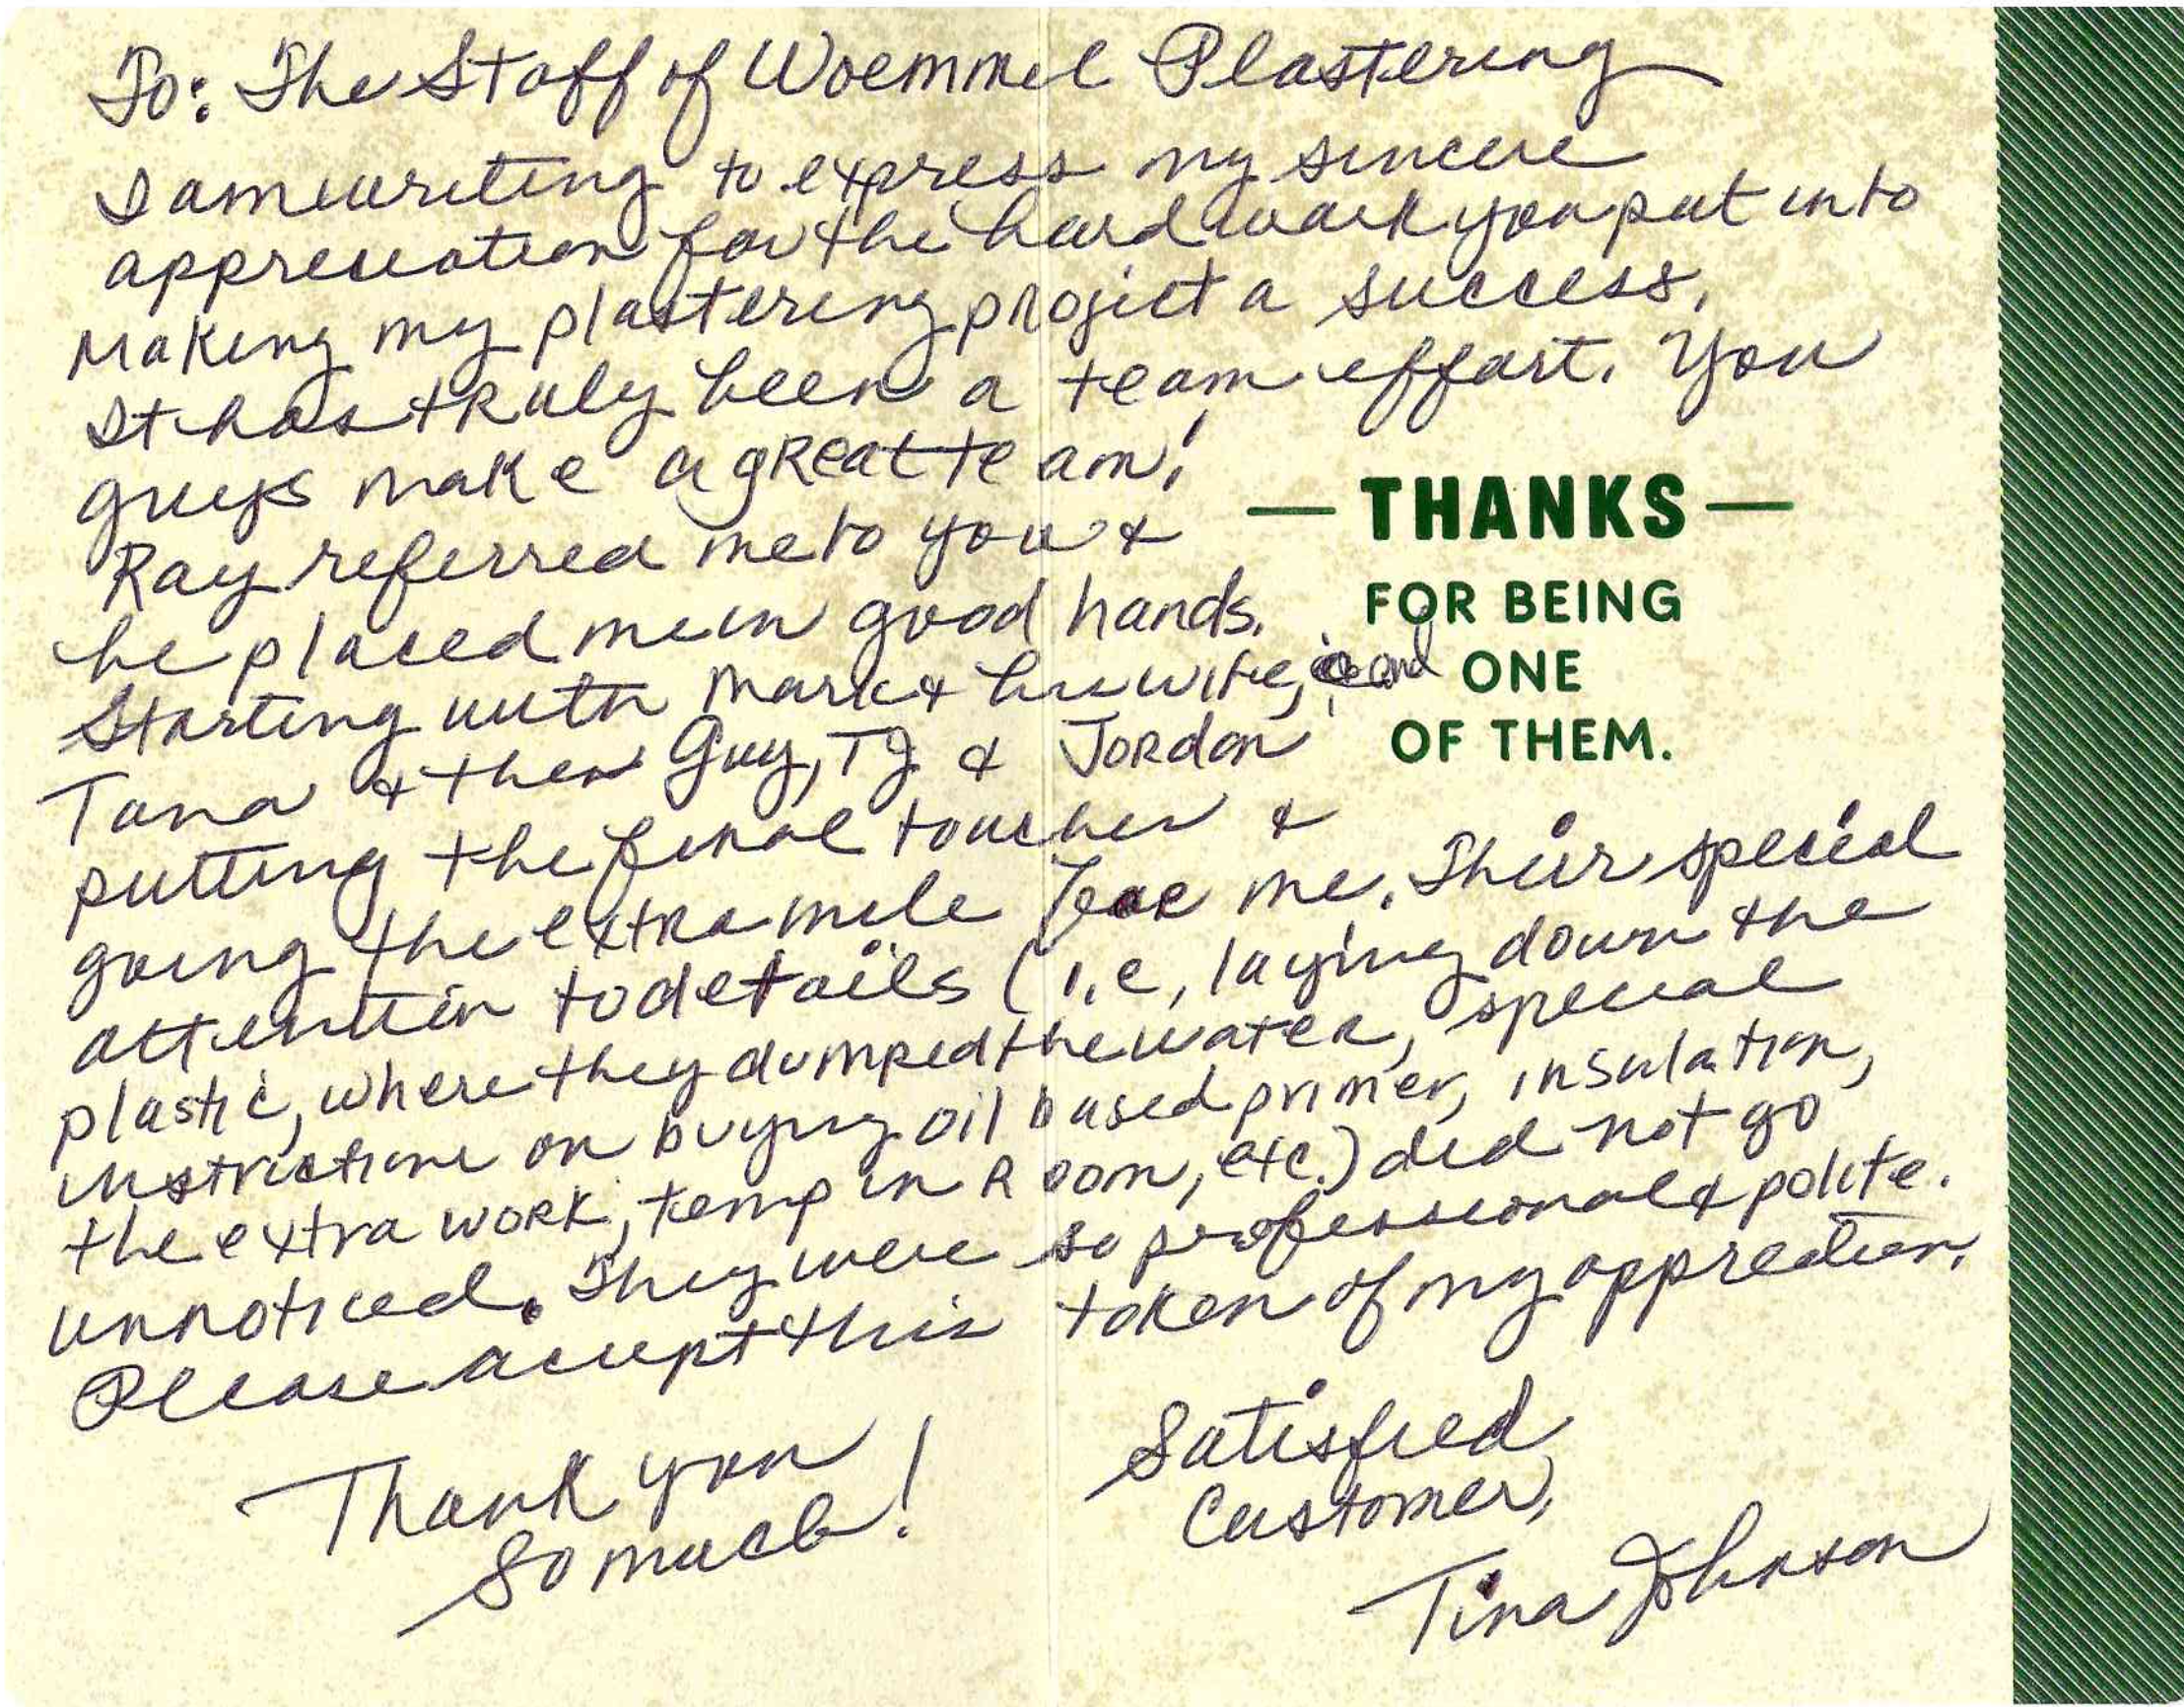 To: The Staff of Woemmel Plastering
I am writing to express my sincere
appreciation for the hard work you put into
Making my plastering project a success.
It has truly been a team effort. You
guys make a great team!
Ray referred me to you &
he placed me in good hands.
Starting with Mark & his wife, and
Tana & then Guy, TJ & Jordan
putting the final touches &
going the extra mile for me. Their special
attention to details (i.e, laying down the
plastic, where they dumped the water, special
instructions on buying oil based primer, insulation,
the extra work, temp in Room, etc.) did not go
unnoticed. They were so professional & polite.
Please accept this token of my appreation.
Thank you
So much!
Satisfied
Customer,
Tina Johnson
— THANKS —
FOR BEING
ONE
OF THEM.